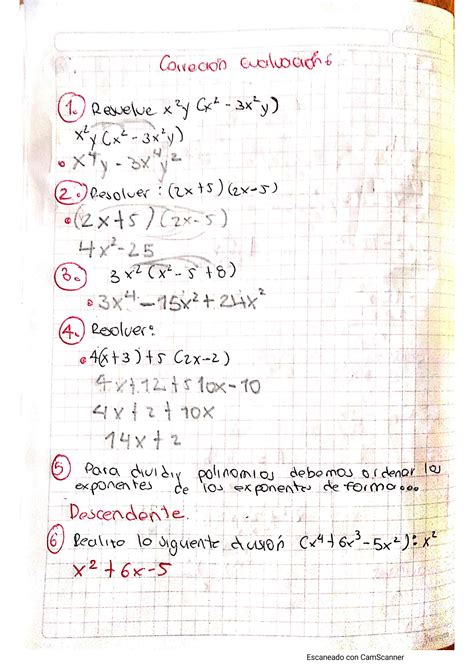 Corrección evaluación
1. Resuelve x²y (x² - 3x²y)
x²y (x² - 3x²y)
• x⁴y - 3x⁴y²
2. Resolver: (2x+5) (2x-5)
• (2x+5) (2x-5)
4x²-25
3. 3x² (x² - 5 + 8)
• 3x⁴ - 15x² + 24x²
4. Resolver:
• 4(x+3)+5 (2x-2)
4x+12+5 10x-10
4x+2+10x
14x+2
5 Para dividir polinomios debemos ordenar los
exponentes de los exponentes de forma...
Descendente.
6 Realiza la siguiente división (x⁴+6x³-5x²): x²
x²+6x-5
Escaneado con CamScanner